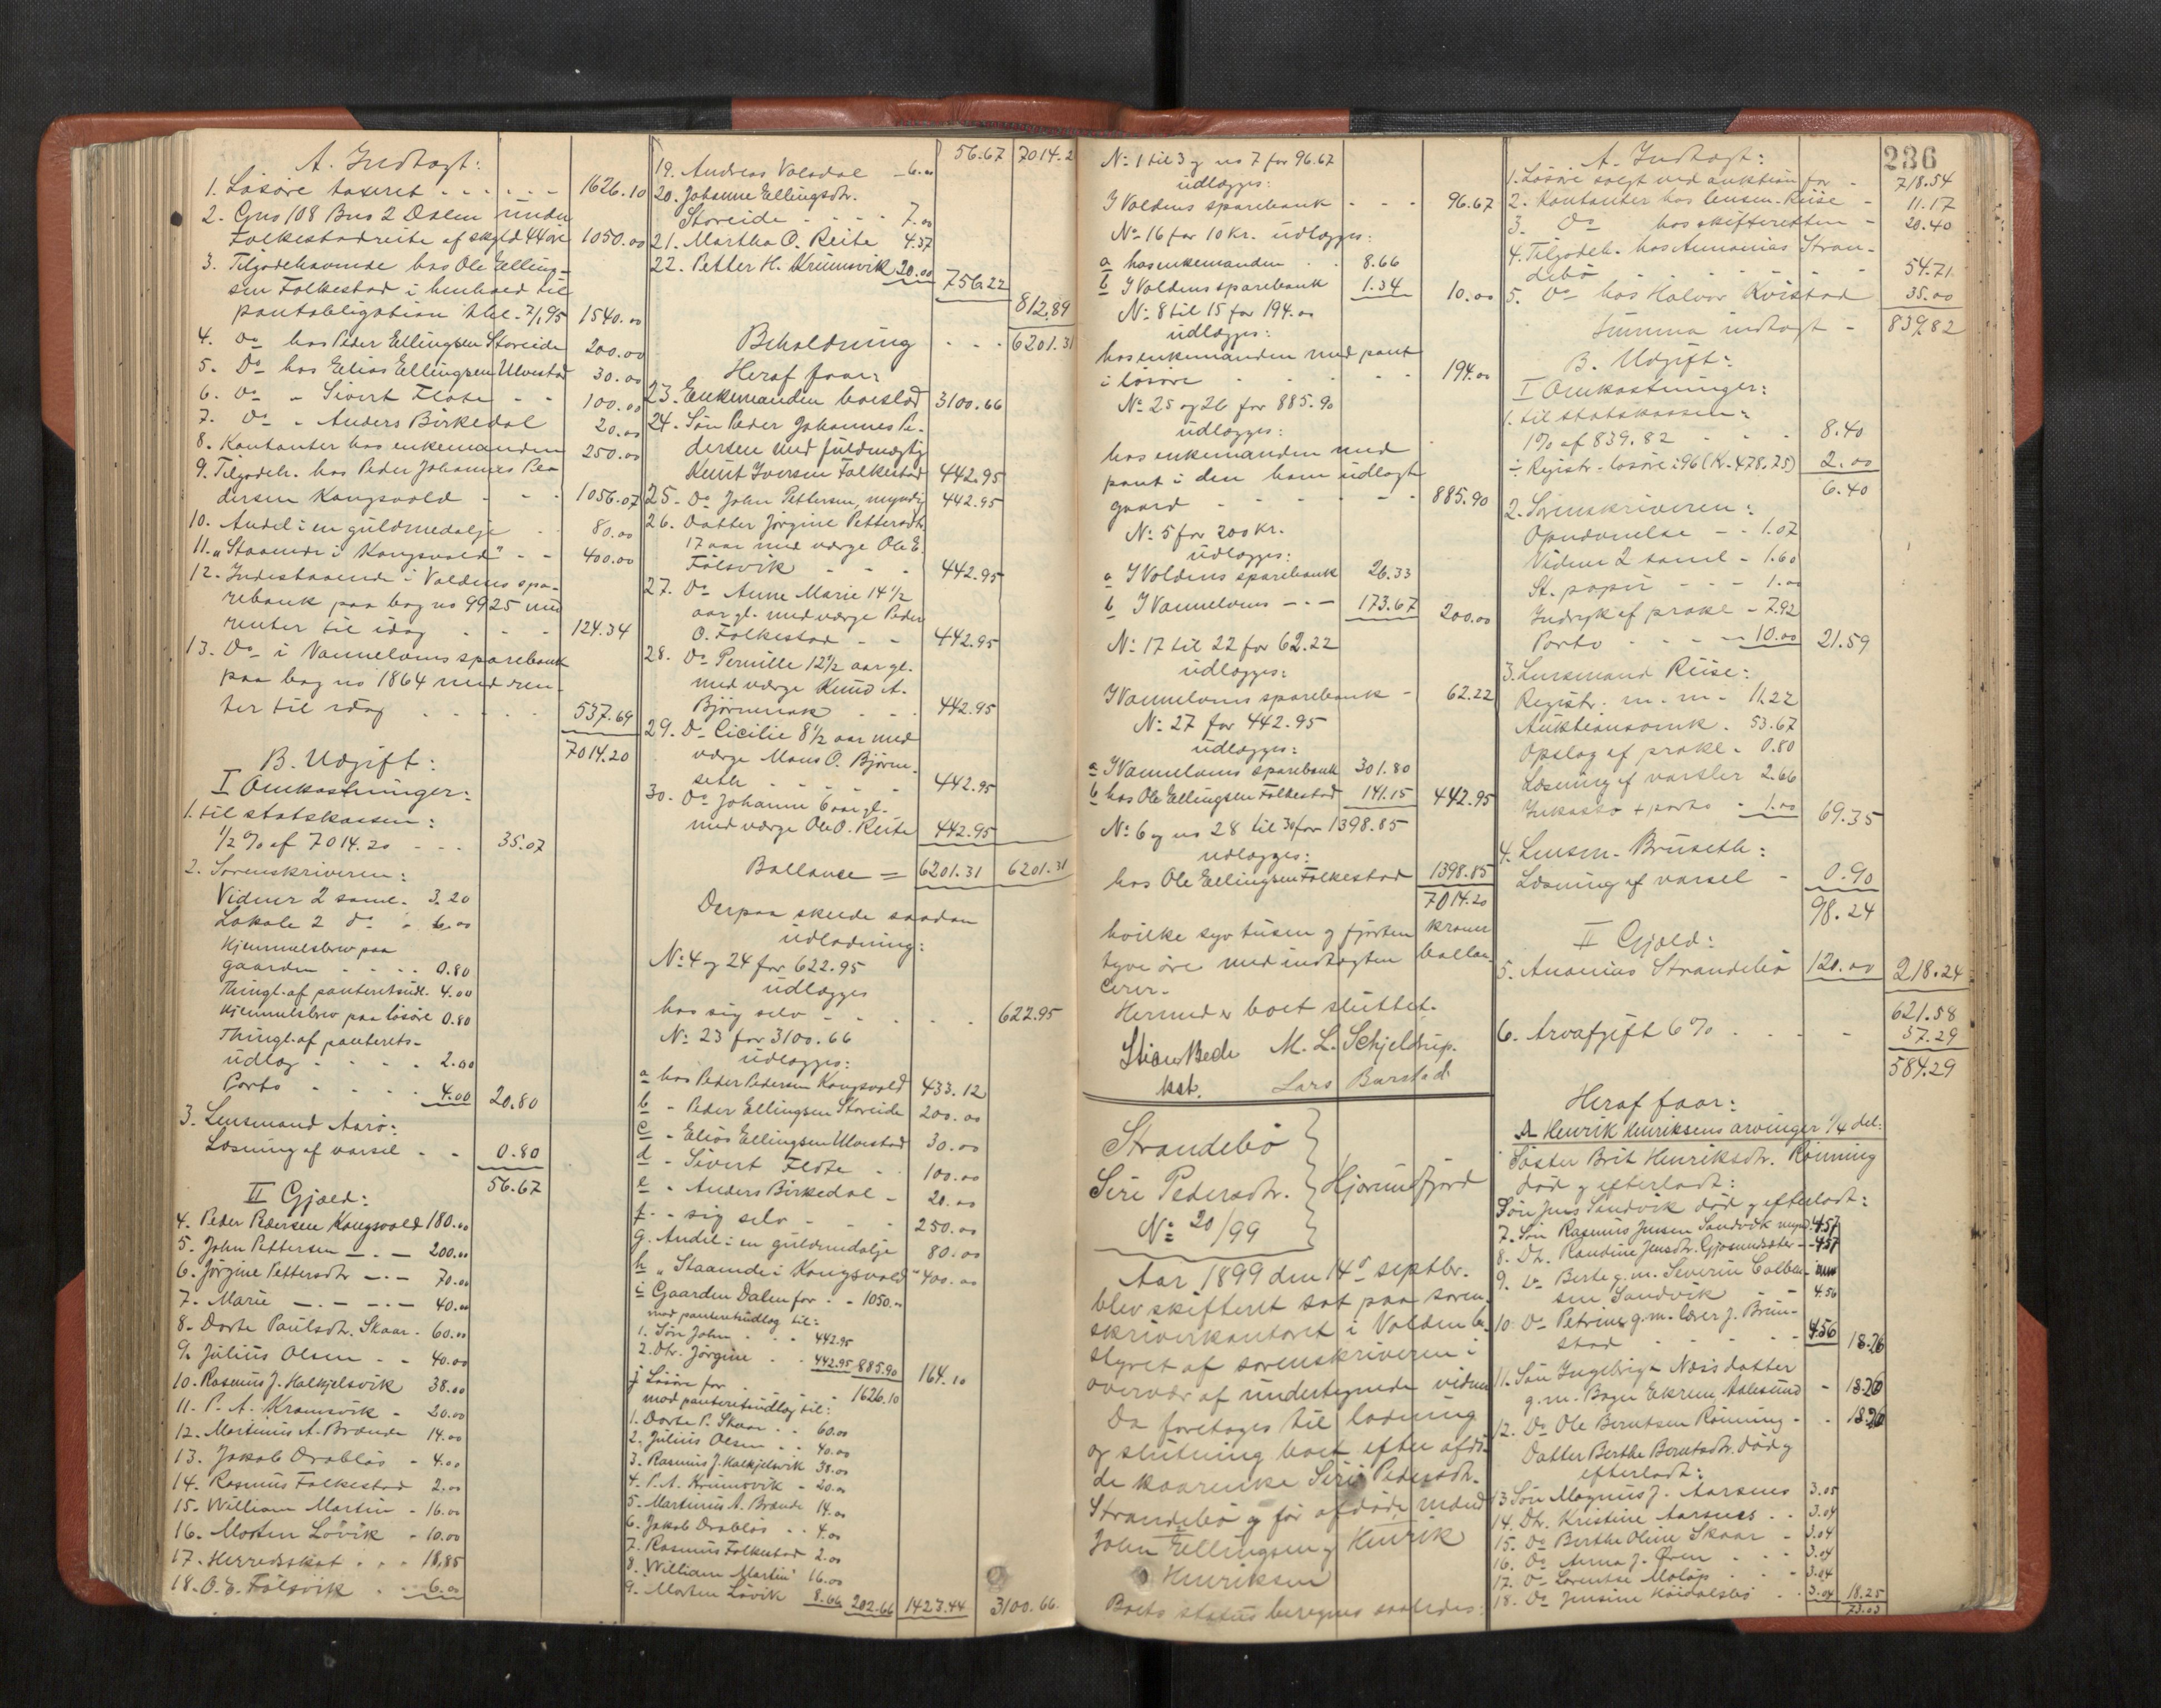 A. Indtægt:
1. Løsøre taxeret - - - - - 1626.10
2. Gno 108 Bno 2 Dalen under
Folkestadreite af skyld 44 øre 1050.00
3. Tilgodehavende hos Ole Elling-
sen Folkestad i henhold til
pantobligation thl. 7/1 95 1540.00
4. Do hos Peder Ellingsen Storeide 200.00
5. Do hos Elias Ellingsen Ulvestad 30.00
6. Do - Sivert Fløte - - 100.00
7. Do - Anders Birkedal 20.00
8. Kontanter hos enkemanden 250.00
9. Tilgodeh. hos Peder Johannes Pe-
dersen Kongsvold - - - 1056.07
10. Andel i en guldmedalje - 80.00
11. "Staaende i Kongsvold" - - 400.00
12. Indestaaende i Voldens spa-
rebank paa bog no 9925 med
renter til idag - - - 124.34
13. Do i Vannelvens sparebank
paa bog no 1864 med ren-
ter til idag - - - - 537.69
7014.20
B. Udgift:
I Omkostninger:
1. til statskassen:
1/2 % af 7014.20 - - - 35.07
2. Sorenskriveren:
Vidner 2 saml. 3.20
Lokale 2 do - 6.00
Hjemmelsbrev paa
gaarden - - - - 0.80
Thingl. af panteretsudl. 4.00
Hjemmelsbrev paa løsøre 0.80
Thingl. af panterets-
udlæg - - - - 2.00
Porto - - - - 4.00 20.80
3. Lensmand Aarø:
Læsning af varsel - - 0.80
56.67
II Gjæld:
4. Peder Pedersen Kongsvold 180.00
5. John Pettersen - . - 200.00
6. Jørgine Pettersdtr - . - 70.00
7. Marie - . - - . - 40.00
8. Dorte Paulsdtr. Skaar - 60.00
9. Julius Olsen - - 40.00
10. Rasmus J. Halkjelsvik 38.00
11. P. A. Krumsvik - 20.00
12. Martinus A. Brande 14.00
13. Jakob Drabløs - 4.00
14. Rasmus Folkestad 2.00
15. William Martin - 16.00
16. Morten Løvik - 10.00
17. Herredsskat - - - 18.85
18. O. E. Fölsvik - - 6.00
56.67 7014.2
19. Andreas Valsdal - 6.00
20. Johanne Ellingsdtr.
Storeide - - - - 7.00
21. Martha O. Reite 4.37
22. Petter H. Krumsvik 20.00 756.22
812.89
Beholdning - - - 6201.31
Heraf faar:
23. Enkemanden boeslod 3100.66
24. Søn Peder Johannes Pe-
dersen med fuldmægtig
Knut Iversen Folkestad 442.95
25. Do John Pettersen, myndig 442.95
26. Datter Jørgine Pettersdtr.
17 aar med værge Ole E.
Fölsvik - - - 442.95
27. Do Anne Marie 14 1/2
aar gl. med værge Peder
O. Folkestad - - 442.95
28. Do Pernille 12 1/2 aar gl.
med værge Knud A.
Bjørnenak - - - 442.95
29. Do Cicilie 8 1/2 aar med
værge Mons O. Bjørne-
seth - - - - - 442.95
30. Do Johanne 6 aar gl.
med værge Ole O. Reite 442.95
Ballance = 6201.31 6201.31
Derpaa skede saadan
udlodning:
No 4 og 24 for 622.95
udlægges
hos sig selv - - - - - 622.95
No 23 for 3100.66
udlægges:
a hos Peder Pedersen Kongsvold 433.12
b - Peder Ellingsen Storeide 200.00
c - Elias Ellingsen Ulvestad 30.00
d - Sivert Fløte - - 100.00
e - Anders Birkedal - 20.00
f - sig selv - - - 250.00
g. Andel i en guldmedalje 80.00
h "Staaende i Kongsvold" 400.00
i Gaarden Dalen for - - 1050.00
mod panteretsudlæg til:
1. Søn John - - - 442.95
2. Dtr. Jørgine - - 442.95 885.90 164.10
j Løsøre for - - - - 1626.10
mod panteretsudlæg til:
1. Dorte P. Skaar - - 60.00
2. Julius Olsen - - 40.00
3. Rasmus J. Halkjelsvik 38.00
4. P. A. Krumsvik - 20.00
5. Martinus A. Brande 14.00
6. Jakob Drabløs - - 4.00
7. Rasmus Folkestad 2.00
8. William Martin 16.00
9. Morten Løvik 8.66 202.66 1423.44 3100.66.
No 1 til 3 og no 7 for 96.67
udlægges:
I Voldens sparebank - - - 96.67
No 16 for 10 Kr. udlægges:
a hos enkemanden - - 8.66
b I Voldens sparebank 1.34 10.00
No 8 til 15 for 194.00
udlægges:
hos enkemanden med pant
i løsøre - - - - - 194.00
No 25 og 26 for 885.90
udlægges:
hos enkemanden med
pant i den ham udlagte
gaard - - - - - 885.90
No 5 for 200 Kr.
udlægges:
a I Voldens sparebank 26.33
b I Vannelvens - . - 173.67 200.00
No 17 til 22 for 62.22
udlægges:
I Vannelvens sparebank - 62.22
No 27 for 442.95
udlægges:
a I Vannelvens sparebank 301.80
b hos Ole Ellingsen Folkestad 141.15 442.95
No 6 og no 28 til 30 for 1398.85
udlægges:
hos Ole Ellingsen Folkestad 1398.85
7014.20
hvilke syv tusen og fjorten kroner
tyve øre med indtægten ballan-
cerer.
Hermed er boet sluttet.
M. L. Schjeldrup.
kst. Lars Barstad
Strandebø
Siri Pedersdtr. } Hjørundfjord
No 20/99
Aar 1899 den 14de septbr.
blev skifteret sat paa soren-
skriverkontoret i Volden be-
styret af sorenskriveren i
overvær af undertegnede vidner
Da foretoges til lodning
og slutning boet efter afdø-
de kaarenke Siri Pedersdtr.
Strandebø og før afdøde mænd
John Ellingsen og Henrik
Henriksen
Boets status beregnes saaledes:
236
A. Indtægt:
1. Løsøre solgt ved auktion for - 718.54
2. Kontanter hos lensm. Riise - 11.17
3. Do hos skifteretten - 20.40
4. Tilgodeh. hos Annanias Stran-
debø - - - - - 54.71
5. Do hos Halvor Kvistad 35.00
Summa indtægt - 839.82
B. Udgift:
I Omkostninger:
1. til statskassen:
1 % af 839.82 - - - 8.40
÷ Registr. løsøre i 96 (Kr. 478.75) 2.00
6.40
2. Sorenskriveren:
Opnævnelse - - 1.07
Vidner 2 saml - 1.60
St. papir - - - 1.00
Indryk af prokl - 7.92
Porto - - - - 10.00 21.59
3. Lensmand Riise:
Registr. m. m. - 11.22
Auktionsomk. 53.67
Opslag af prokl. 0.80
Læsning af varsler 2.66
Inkasso + porto - 1.00 69.35
4. Lensm. Bruseth:
Læsning af varsel - 0.90
98.24
II Gjæld:
5. Ananias Strandebø 120.00 218.24
621.58
6. Arvafgift 6 % - - - 37.29
584.29
Heraf faar:
A Henrik Henriksens arvinger 1/4 del:
Søster Brit Henriksdtr. Rønning
død og efterladt:
Søn Jens Sandvik død og efterladt:
7. Søn Rasmus Jensen Sandvik mynd. 4.57
8. Dtr. Randine Jensdtr. Gjøsundsæter - - 4.57
9. Do Berte g. m. Severin Colben-
sen Sandvik - - 4.56
10 Do Petrine g. m. lærer J. Brun-
stad - - - - - 4.56 18.26
11. Søn Ingebrigt Næss datter
g. m. Bager Ekrem Aalesund - 18.26
12. Do Ole Berntsen Rønning - - 18.26
Datter Berthe Berntsdtr. død og
efterladt:
13 Søn Magnus J. Aarsnes 3.05
14. Dtr. Kristine Aarsnes - - 3.04
15. Do Berthe Oline Skaar - 3.04
16. Do Anna J. Øren - - - 3.04
17. Do Lorentse Moløp - - 3.04
18. Do Jensine Høidalsbø - - 3.04 18.25
73.03